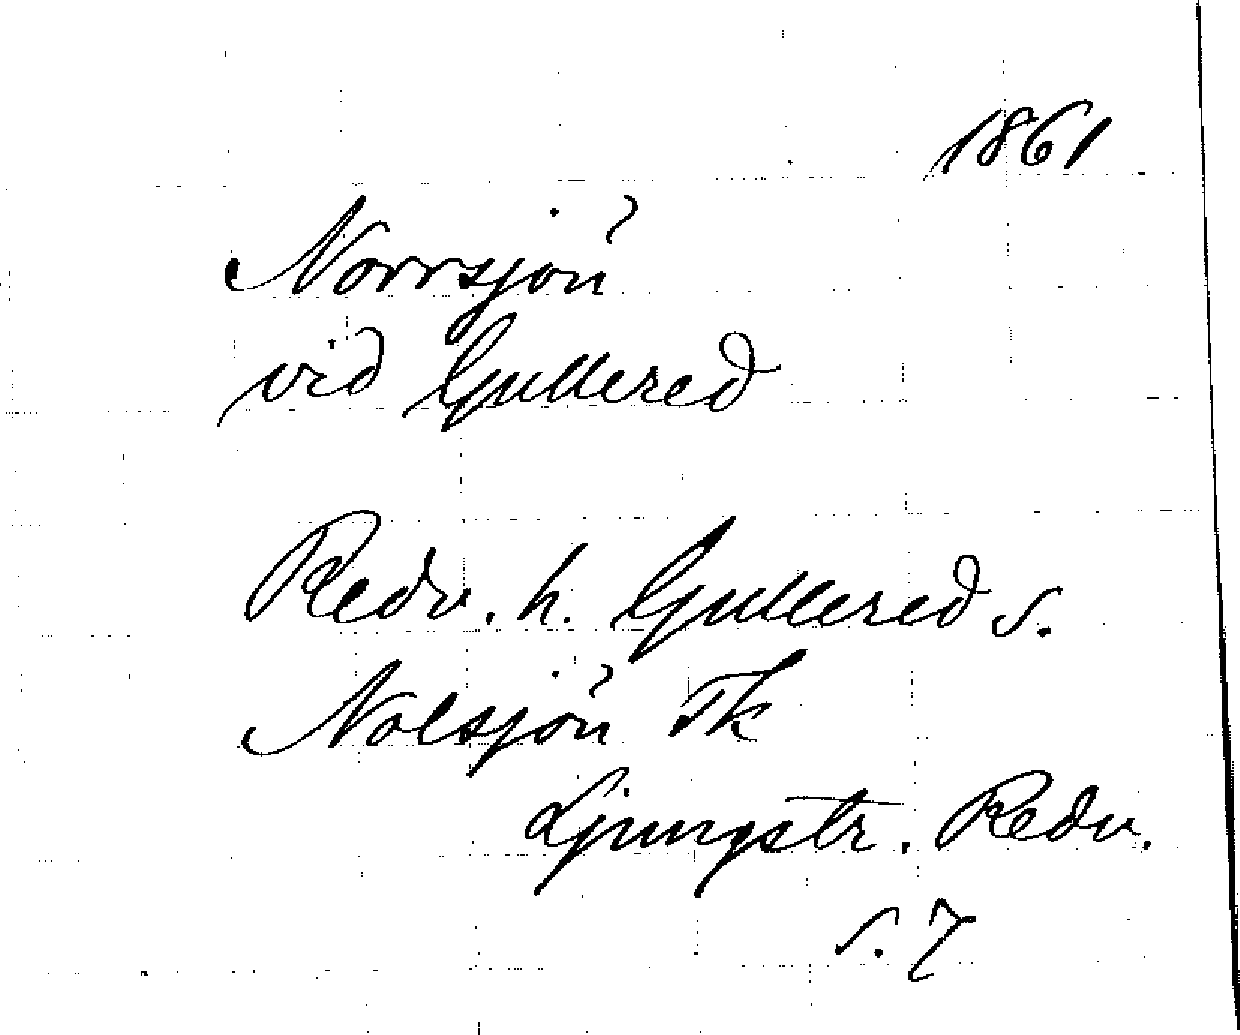 1861
Norrsjön
vid Gullered
Redv. h. Gullered s.
Nolsjön Tk
Ljungstr. Redv.
s. 7